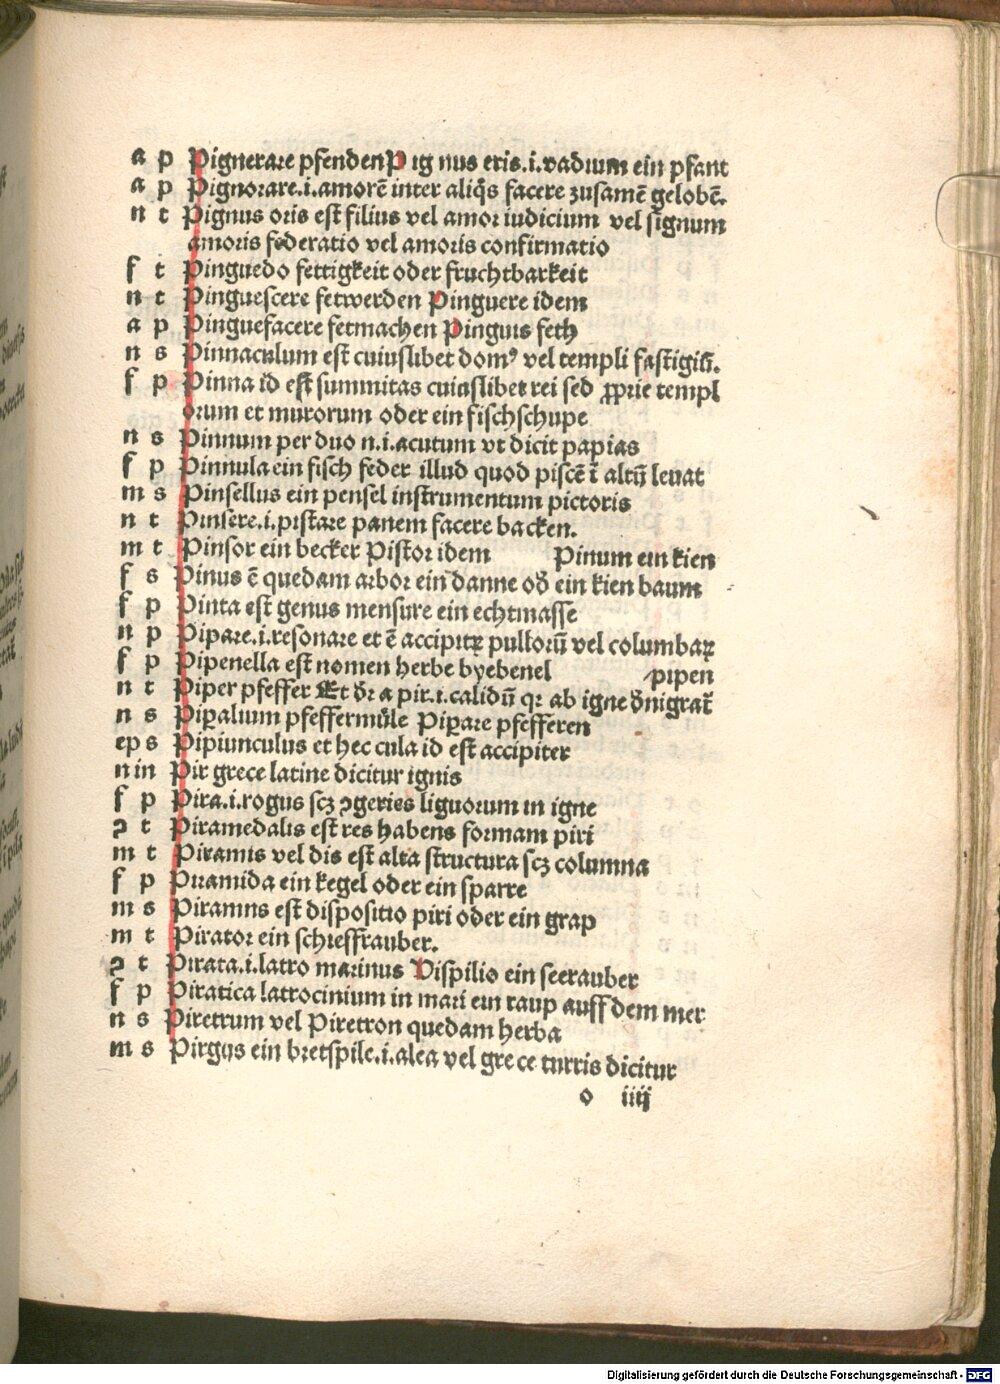 a p Pignerare pfenden Pig nus eris.i.vadium ein pfant
a p Pignorare.i.amorē inter aliq̄s facere zusamē gelobē.
n t Pignus oris est filius vel amor iudicium vel signum
amoris federatio vel amoris confirmatio
f t Pinguedo fettigkeit oder fruchtbarkeit
n t Pinguescere fetwerden Pinguere idem
a p Pinguefacere fetmachen Pinguis feth
n s Pinnaculum est cuiuslibet domꝰ vel templi fastigiū.
f p Pinna id est summitas cuiuslibet rei sed ꝓprie templ
orum et murorum oder ein fischschupe
n s Pinnum per duo n.i.acutum vt dicit papias
f p Pinnula ein fisch feder illud quod piscē ī altū leuat
m s Pinsellus ein pensel instrumentum pictoris
n t Pinsere.i.pistare panem facere backen.
m t Pinsor ein becker Pistor idem Pinum ein kien
f s Pinus ē quedam arbor ein danne od̄ ein kien baum
f p Pinta est genus mensure ein echtmasse
n p Pipare.i.resonare et ē accipitꝝ pullorū vel columbaꝝ
f p Pipenella est nomen herbe byebenel pipen
n t Piper pfeffer Et dr̄ a pir.i.calidū qꝛ ab igne d̄nigrat̄
n s Piꝑalium pfeffermüle Piꝑare pfefferen
ep s Pipiunculus et hec cula id est accipiter
n in Pir grece latine dicitur ignis
f p Pira.i.rogus scꝫ ꝯgeries liguorum in igne
ꝯ t Piramedalis est res habens formam piri
m t Piramis vel dis est alta structura scꝫ columna
f p Piramida ein kegel oder ein sparre
m s Piramns est dispositio piri oder ein grap
m t Pirator ein schieffrauber.
ꝯ t Pirata.i.latro marinus Dispilio ein seerauber
f p Piratica latrocinium in mari ein raup auff dem mer
n s Piretrum vel Piretron quedam herba
m s Pirgus ein bretspile.i.alea vel gre ce turris dicitur
o iiij
Digitalisierung gefördert durch die Deutsche Forschungsgemeinschaft - DFG